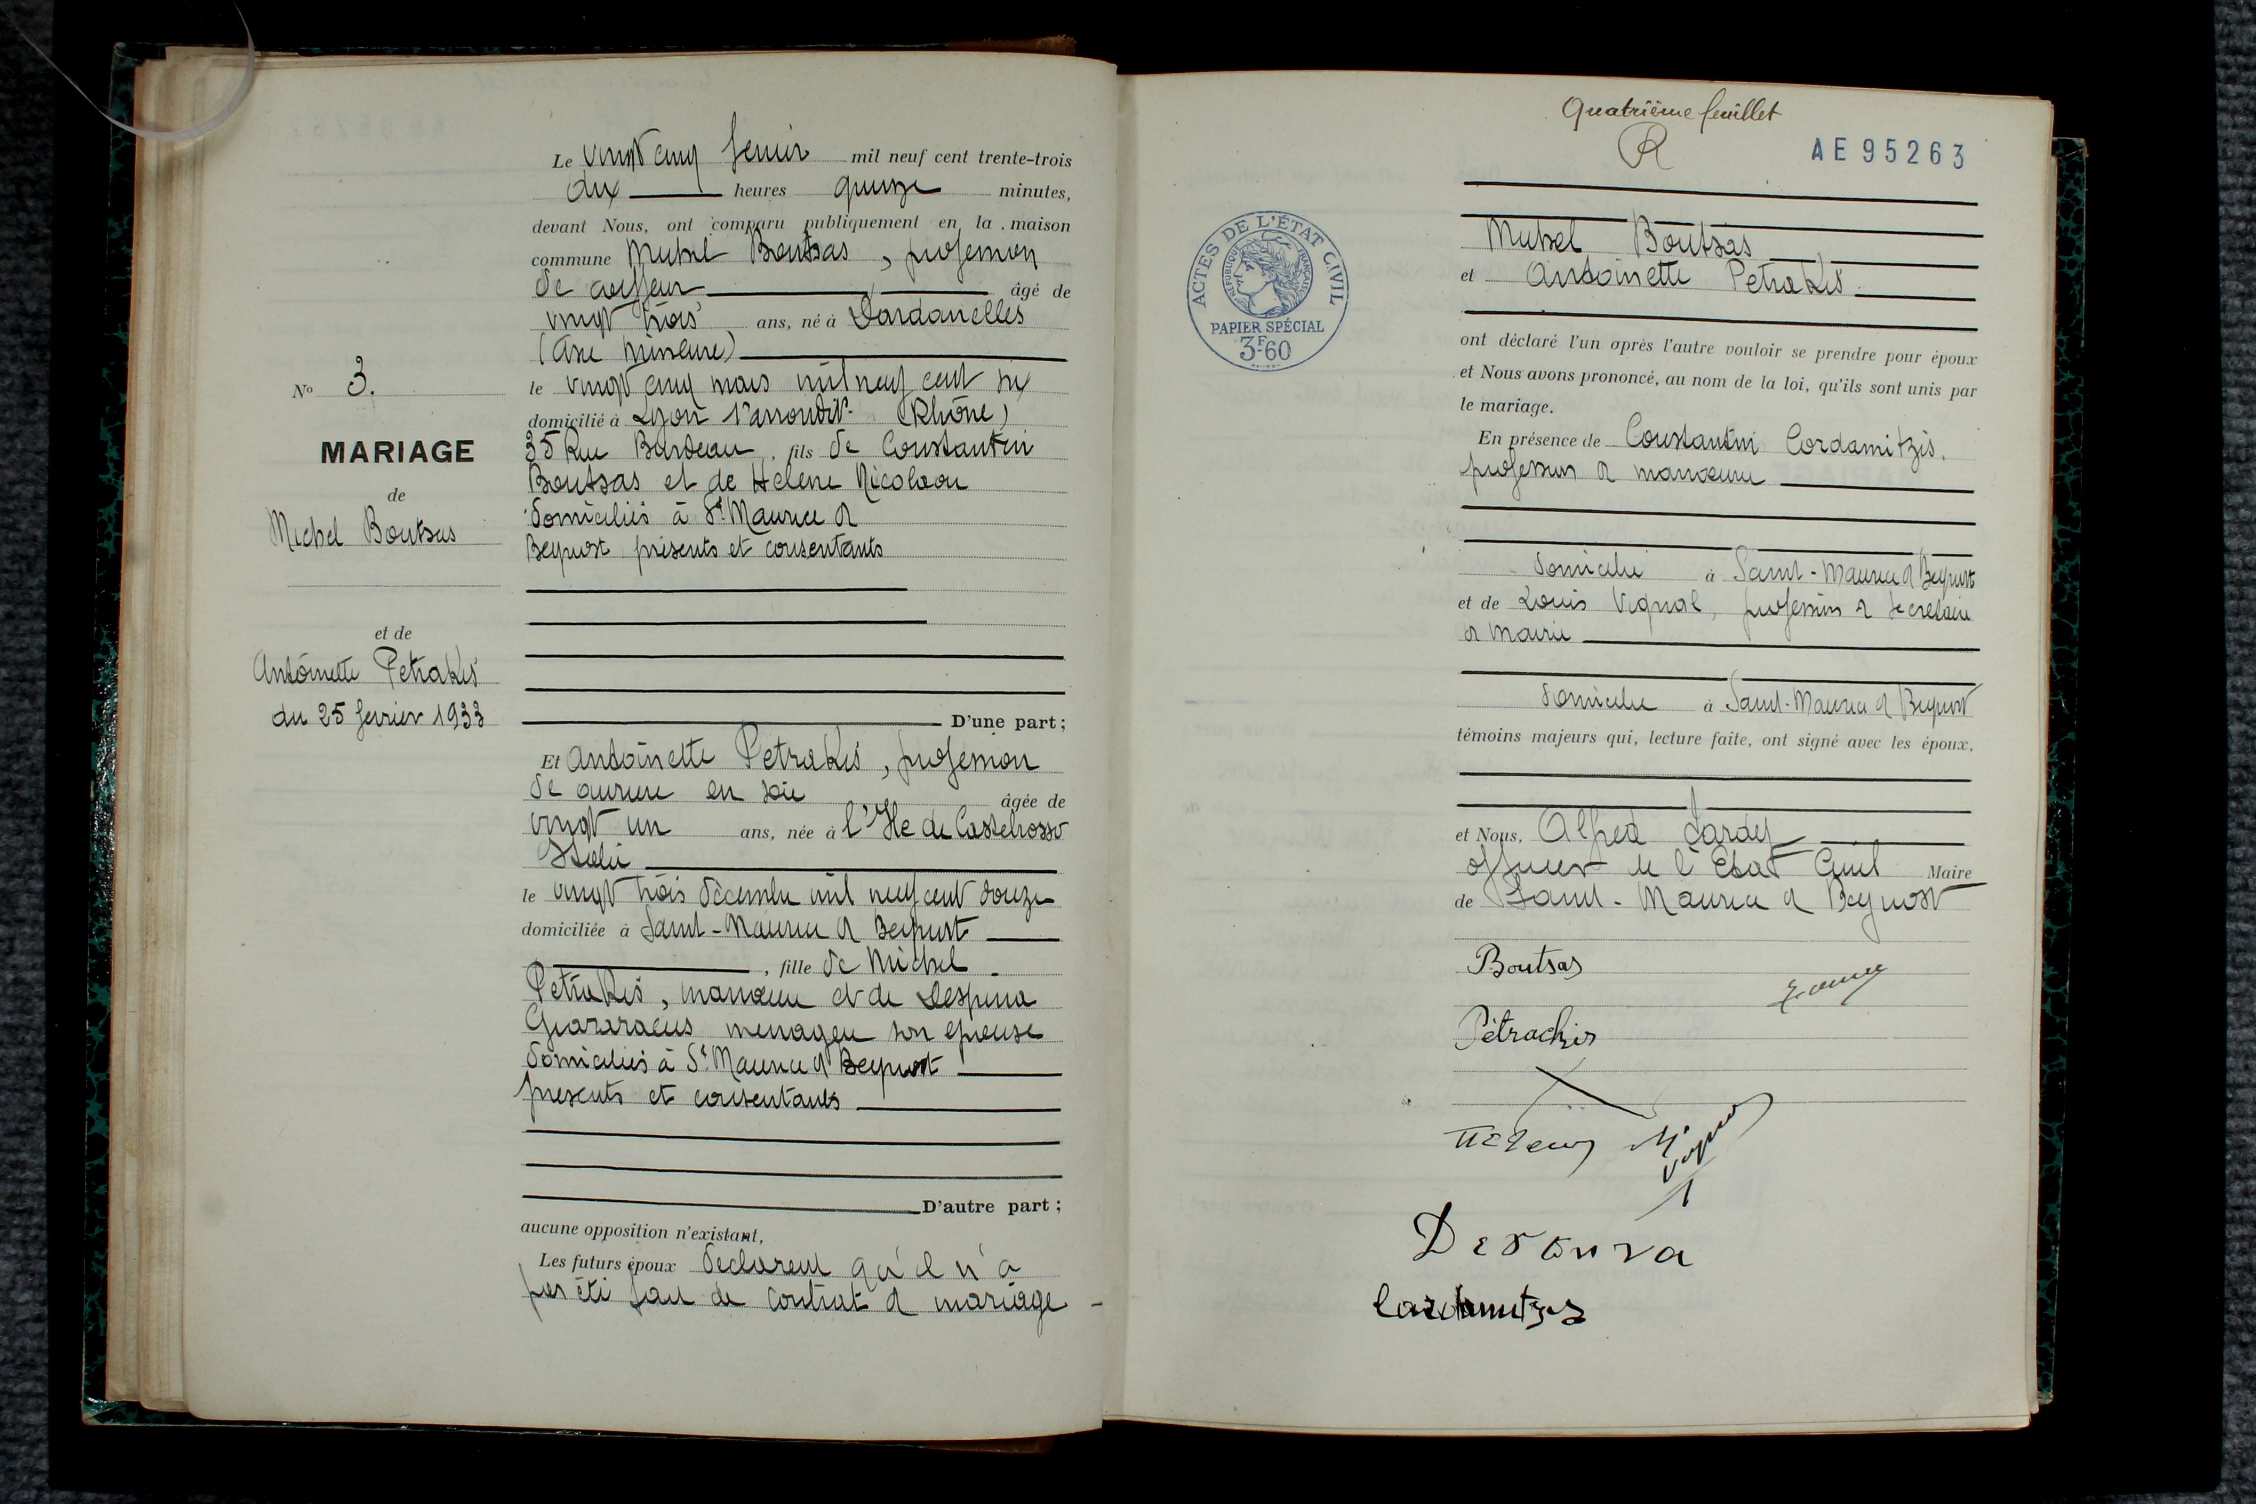 N° 3.
MARIAGE
de
Michel Boutsas
et de
Antoinette Petrakis
du 25 fevrier 1933
Le vingt cinq fevrier mil neuf cent trente-trois
dix heures quinze minutes,
devant Nous, ont comparu publiquement en la maison
commune Michel Boutsas, profession
de coiffeur âgé de
vingt trois ans, né à Dardanelles
(Asie mineure)
le vingt cinq mars mil neuf cent
domicilié à Lyon 1er arrondit. (Rhône)
35 Rue Burdeau, fils de Constantin
Boutsas et de Helene Nicolaou
domiciliés à St. Maurice d
Beynost présents et consentants
D'une part;
Et Antoinette Petrakis, profession
de ouvriere en soie âgée de
vingt un ans, née à l'Ile de Castelrosso
Italie
le vingt trois décembre mil neuf cent douze
domiciliée à Saint-Maurice d Beynost
, fille de Michel
Petrakis, manœuvre et de Despina
menagere son epouse
domiciliés à St. Maurice d Beynost
presents et consentants
D'autre part;
aucune opposition n'existant,
Les futurs époux declarent qu'il n'a
pas été fait de contrat d mariage
Quatrième feuillet
R
AE95263
ACTES DE L'ÉTAT CIVIL
RÉPUBLIQUE FRANÇAISE
PAPIER SPÉCIAL
3F60
Michel Boutsas
et Antoinette Petrakis
ont déclaré l'un après l'autre vouloir se prendre pour époux
et Nous avons prononcé, au nom de la loi, qu'ils sont unis par
le mariage.
En présence de Constantin Cordamitzis,
profession d manœuvre
domicilié à Saint-Maurice d Beynost
et de Louis Vignal, profession d secretaire
d mairie
domicilié à Saint-Maurice d Beynost
témoins majeurs qui, lecture faite, ont signé avec les époux,
et Nous, Alfred Lardy
officier de l'Etat Civil Maire
de Saint-Maurice d Beynost
Boutsas
Pétrachis
Vignal
Cordamitzis